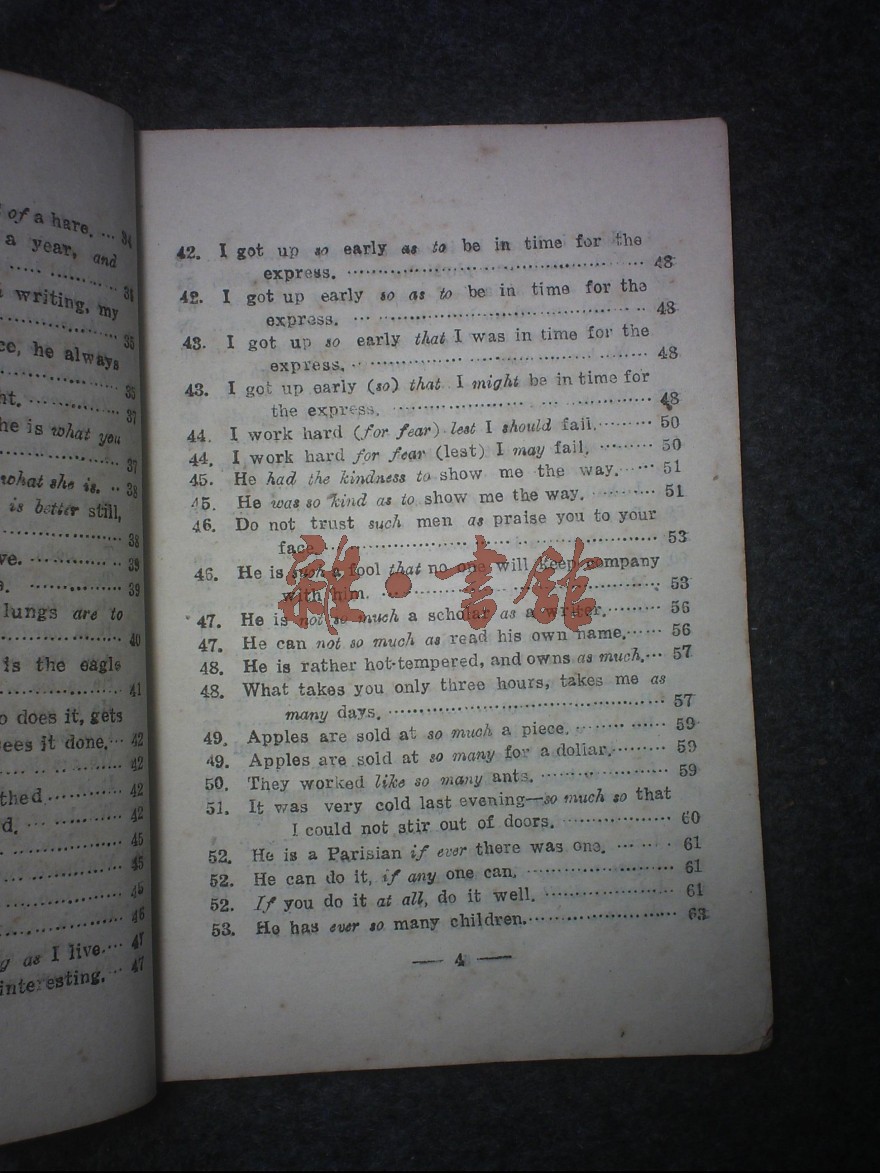 of a hare. ... 34
a year, and
34
writing, my
35
he always
35
37
he is what you
37
what she is. .. 38
is better still,
38
39
39
lungs are to
40
is the eagle
41
does it, gets
sees it done. 42
42
42
42
45
45
46
as I live. 47
interesting. 47
42. I got up so early as to be in time for the
express. 48
42. I got up early so as to be in time for the
express. 48
43. I got up so early that I was in time for the
express. 48
43. I got up early (so) that I might be in time for
the express. 48
44. I work hard (for fear) lest I should fail. 50
44. I work hard for fear (lest) I may fail. 50
45. He had the kindness to show me the way. 51
45. He was so kind as to show me the way. 51
46. Do not trust such men as praise you to your
face. 53
46. He is such a fool that no one will keep company
with him. 53
47. He is not so much a scholar as a writer. 56
47. He can not so much as read his own name. 56
48. He is rather hot-tempered, and owns as much. 57
48. What takes you only three hours, takes me as
many days. 57
49. Apples are sold at so much a piece. 59
49. Apples are sold at so many for a dollar. 59
50. They worked like so many ants. 59
51. It was very cold last evening—so much so that
I could not stir out of doors. 60
52. He is a Parisian if ever there was one. 61
52. He can do it, if any one can. 61
52. If you do it at all, do it well. 61
53. He has ever so many children. 63
— 4 —
雜·書館